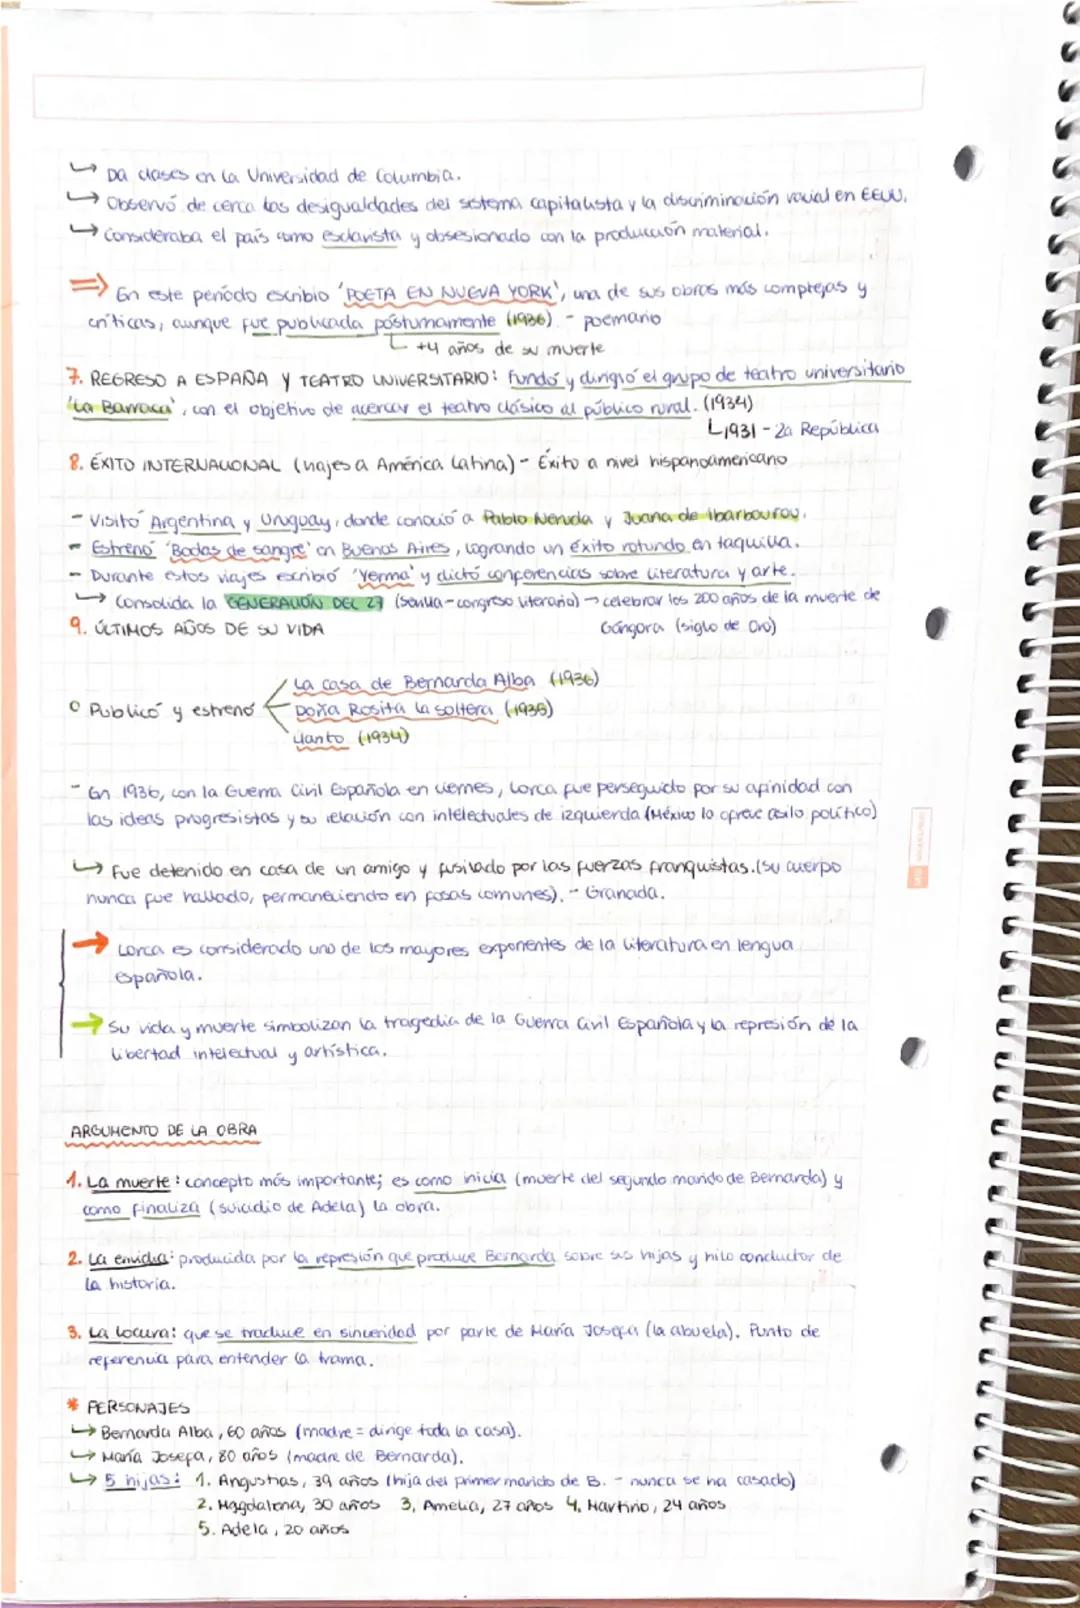 ↳ Da clases en la Universidad de Columbia.
↳ Observó de cerca las desigualdades del sistema capitalista y la discriminación racial en EEUU.
↳ Consideraba el país como esclavista y obsesionado con la producción material.
⇒ En este período escribio 'POETA EN NUEVA YORK', una de sus obras más complejas y
críticas, aunque fue publicada póstumamente (1936) - poemario
↳ +4 años de su muerte
7. REGRESO A ESPAÑA Y TEATRO UNIVERSITARIO: fundó y dirigió el grupo de teatro universitario
'La Barraca', con el objetivo de acercar el teatro clásico al público rural. (1934)
↳ 1931 - 2a República
8. ÉXITO INTERNACIONAL (viajes a América Latina) - Éxito a nivel hispanoamericano
- Visitó Argentina y Uruguay, donde conoció a Pablo Neruda y Juana de Ibarbourou.
- Estrenó 'Bodas de sangre' en Buenos Aires, logrando un éxito rotundo en taquilla.
- Durante estos viajes escribió 'Yerma' y dictó conferencias sobre literatura y arte.
↳ Consolida la GENERACIÓN DEL 27 (Sevilla-congreso literario) → celebrar los 200 años de la muerte de
Góngora (siglo de Oro)
9. ÚLTIMOS AÑOS DE SU VIDA
La casa de Bernarda Alba (1936)
○ Publicó y estrenó Doña Rosita la soltera (1935)
Llanto (1934)
- En 1936, con la Guerra Civil Española en ciernes, Lorca fue perseguido por su afinidad con
las ideas progresistas y su relación con intelectuales de izquierda (México lo ofrece asilo político)
↳ Fue detenido en casa de un amigo y fusilado por las fuerzas franquistas. (su cuerpo
nunca fue hallado, permaneciendo en fosas comunes). - Granada.
→ Lorca es considerado uno de los mayores exponentes de la literatura en lengua
española.
→ Su vida y muerte simbolizan la tragedia de la Guerra Civil Española y la represión de la
libertad intelectual y artística.
ARGUMENTO DE LA OBRA
1. La muerte: concepto más importante; es como inicia (muerte del segundo marido de Bernarda) y
como finaliza (suicidio de Adela) la obra.
2. La envidia: producida por la represión que produce Bernarda sobre sus hijas y hilo conductor de
la historia.
3. La locura: que se traduce en sinceridad por parte de María Josefa (la abuela). Punto de
referencia para entender la trama.
* PERSONAJES
↳ Bernarda Alba, 60 años (madre = dirige toda la casa).
↳ María Josefa, 80 años (madre de Bernarda).
↳ 5 hijas: 1. Angustias, 39 años (hija del primer marido de B. - nunca se ha casado)
2. Magdalena, 30 años 3. Amelia, 27 años 4. Martirio, 24 años
5. Adela, 20 años